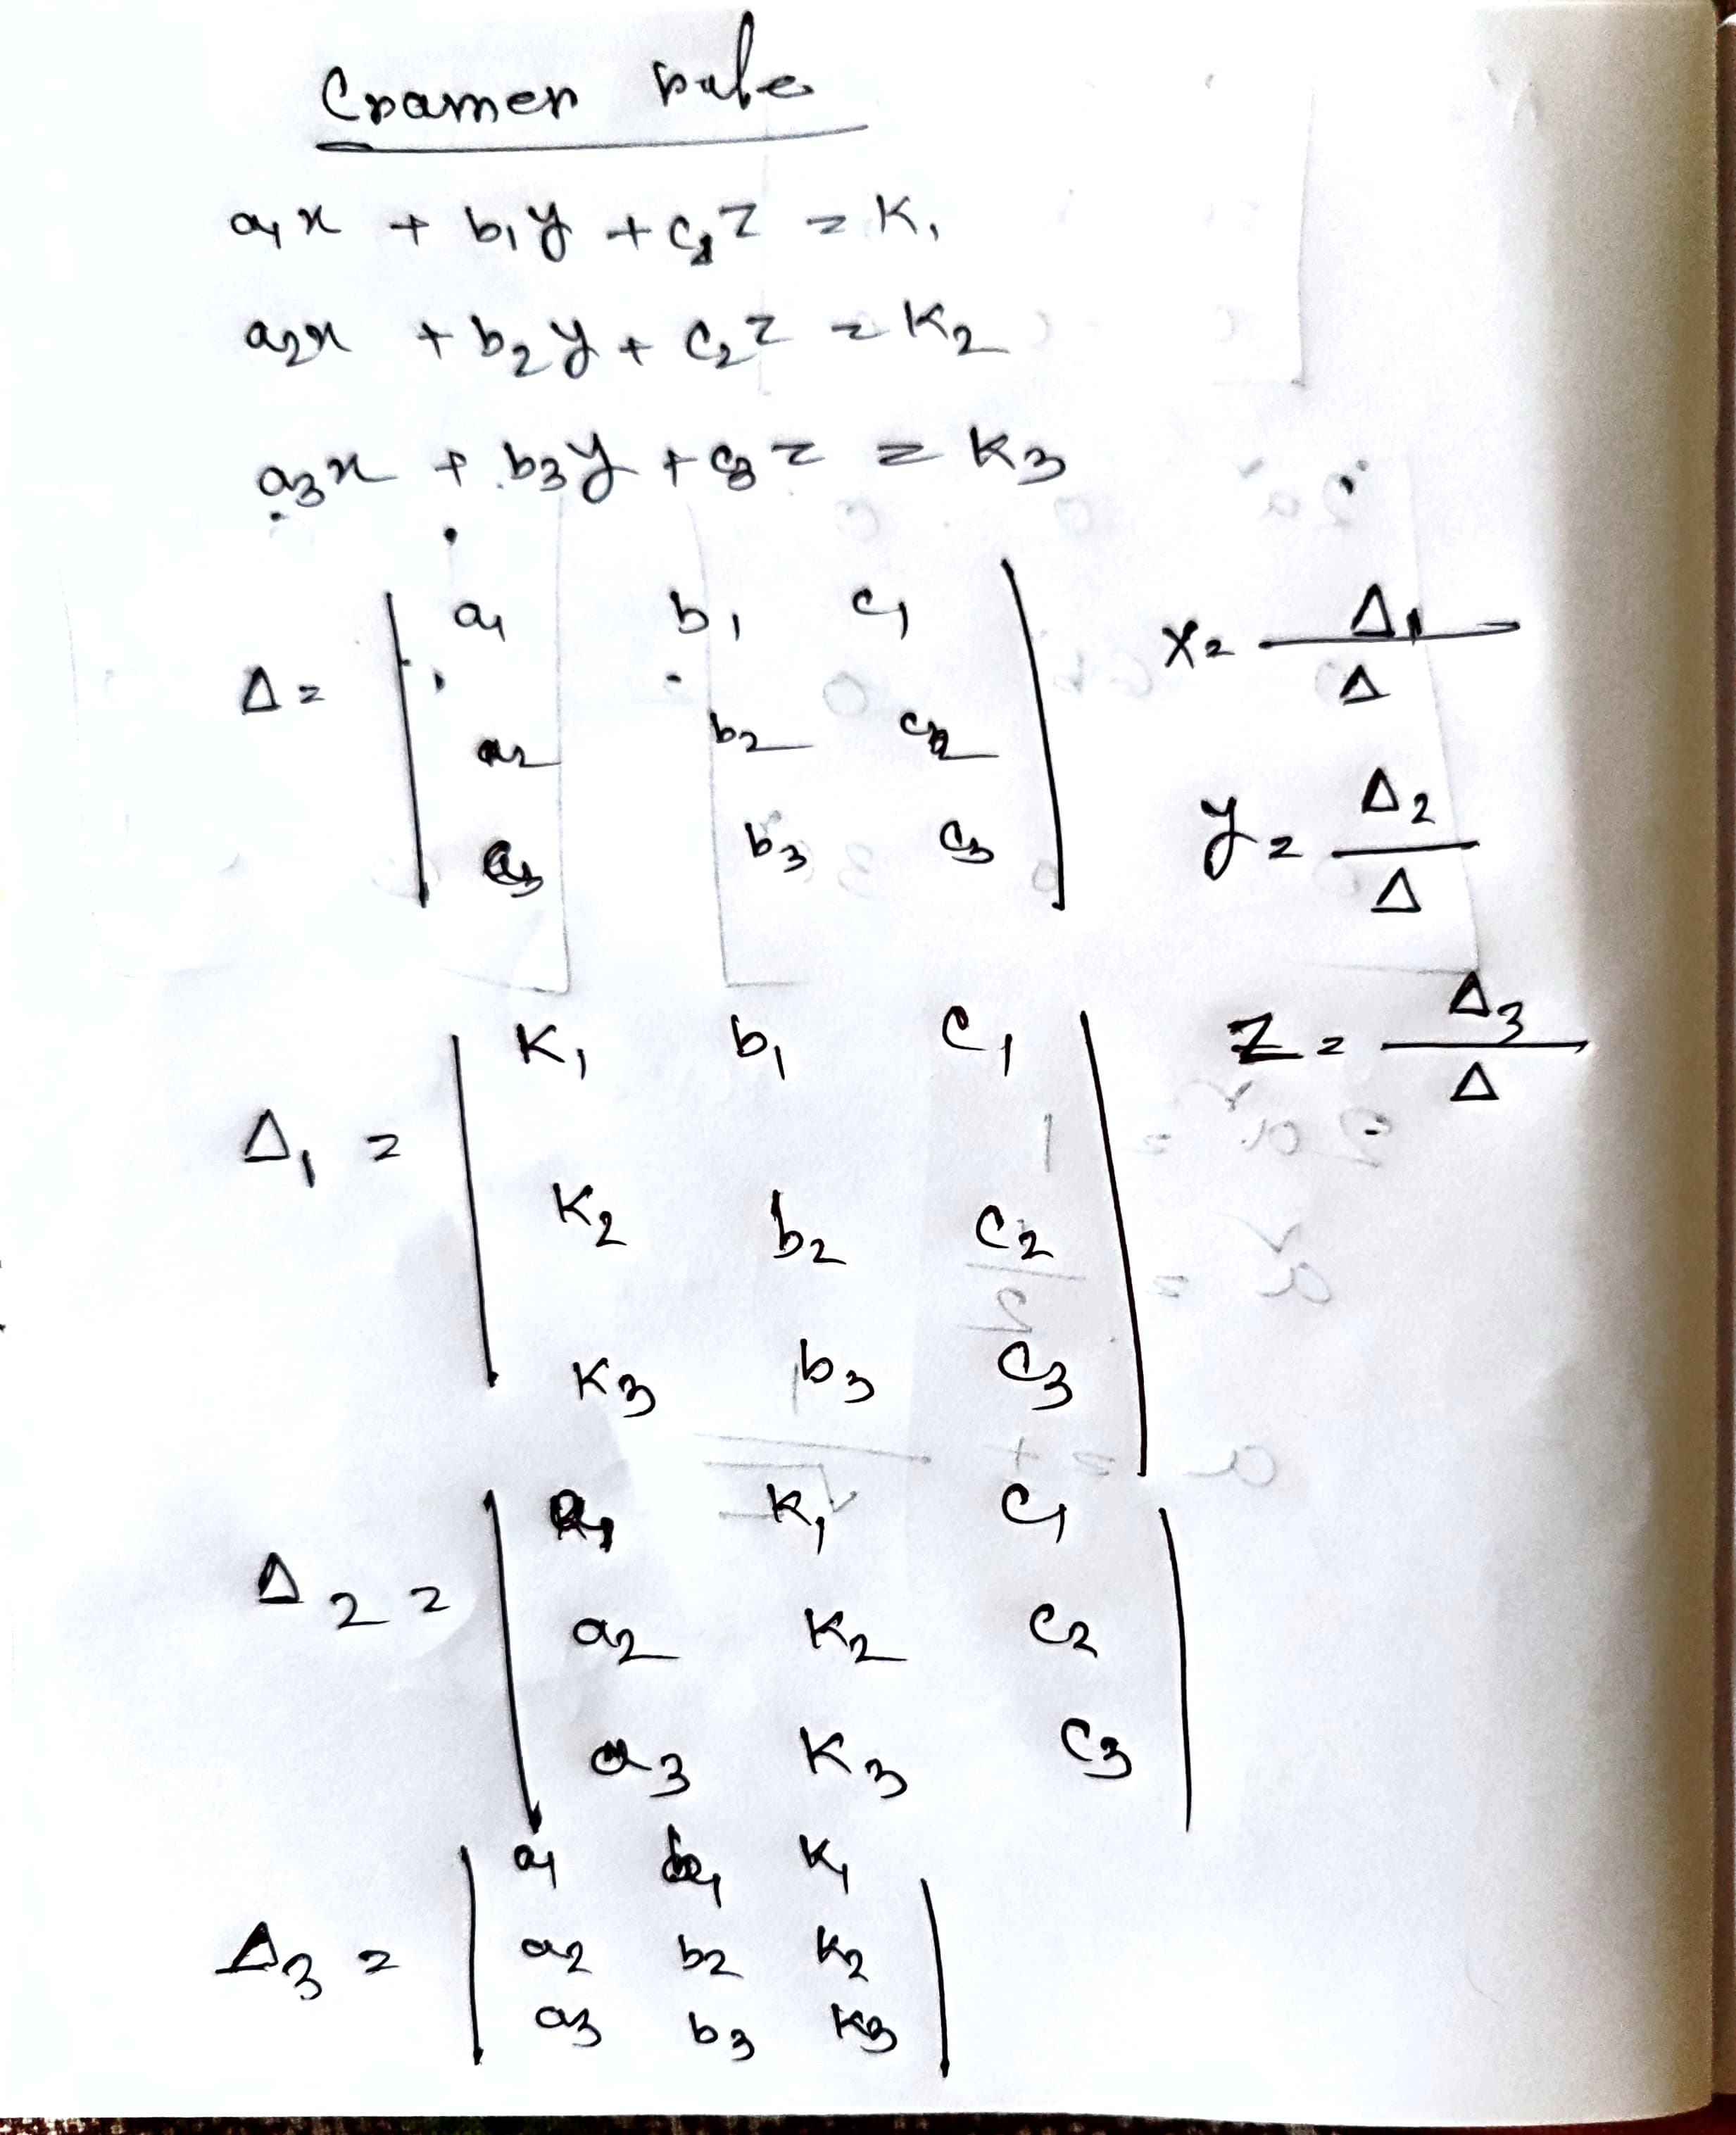 Cramer rule
a₁x + b₁y + c₁z = K₁
a₂x + b₂y + c₂z = K₂
a₃x + b₃y + c₃z = K₃
Δ = | a₁ b₁ c₁ |
| a₂ b₂ c₂ |
| a₃ b₃ c₃ |
x = Δ₁ / Δ
y = Δ₂ / Δ
z = Δ₃ / Δ
Δ₁ = | K₁ b₁ c₁ |
| K₂ b₂ c₂ |
| K₃ b₃ c₃ |
Δ₂ = | a₁ K₁ c₁ |
| a₂ K₂ c₂ |
| a₃ K₃ c₃ |
Δ₃ = | a₁ b₁ K₁ |
| a₂ b₂ K₂ |
| a₃ b₃ K₃ |